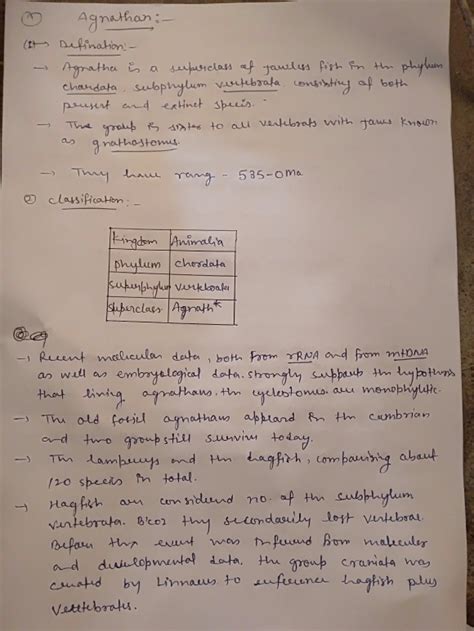 Agnathan:-
① → Defination:-
→ Agnatha is a superclass of jawless fish in the phylum
chordata, subphylum vertebrata, consisting of both
present and extinct specis.
→ The group is sister to all vertebrats with jaws known
as gnathostomes.
→ They have rang - 535-0 Ma
② classification:-
kingdom Animalia
phylum chordata
superphylum vertebrata
superclass Agnath*
→ Recent molicular data, both from rRNA and from mtDNA
as well as embryological data strongly supports the hypothesis
that living agnathans, the cyclostomes are monophyletic.
→ The old fossil agnathans appeard in the cumbrian
and two group still survive today.
→ The lampreys and the hagfish, comparising about
120 species in total.
→ Hagfish are considerd no. of the subphylum
vertebrata. B'coz they secondarily lost vertebrae.
Before this event was infeured from molecular
and developmental data, the group craniata was
created by Linnaeus to reference hagfish plus
vertebrates.